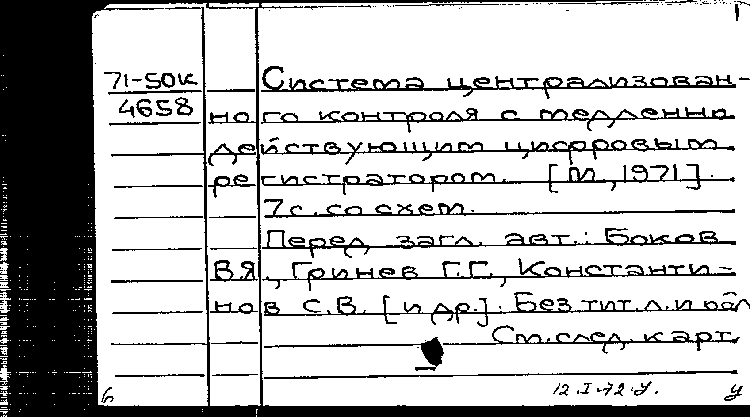 71-50к Система централизован-
4658 ного контроля с медленно
действующим цифровым
регистратором. [М., 1971].
7 с. со схем.
Перед загл. авт.: Боков
В.Я., Гринев Г.Г., Константи-
нов С.В. [и др.]. Без тит. л. и обл
См. след. карт.
б 12.I.72 У. у